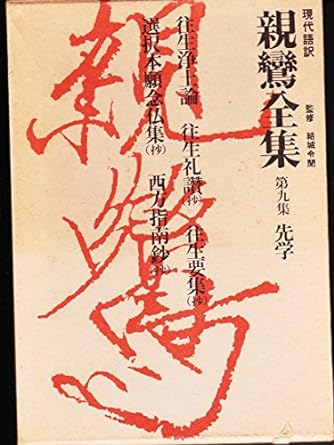 現代語訳
親鸞全集
監修 結城令聞
第九集 先学
往生浄土論 往生礼讃(抄) 往生要集(抄)
選択本願念仏集(抄) 西方指南鈔(抄)
親鸞